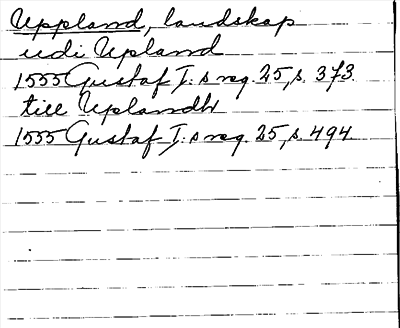 Uppland, landskap
udi Upland
1555 Gustaf I:s reg. 25, s. 373.
till Uplandh
1555 Gustaf I:s reg. 25, s. 494.